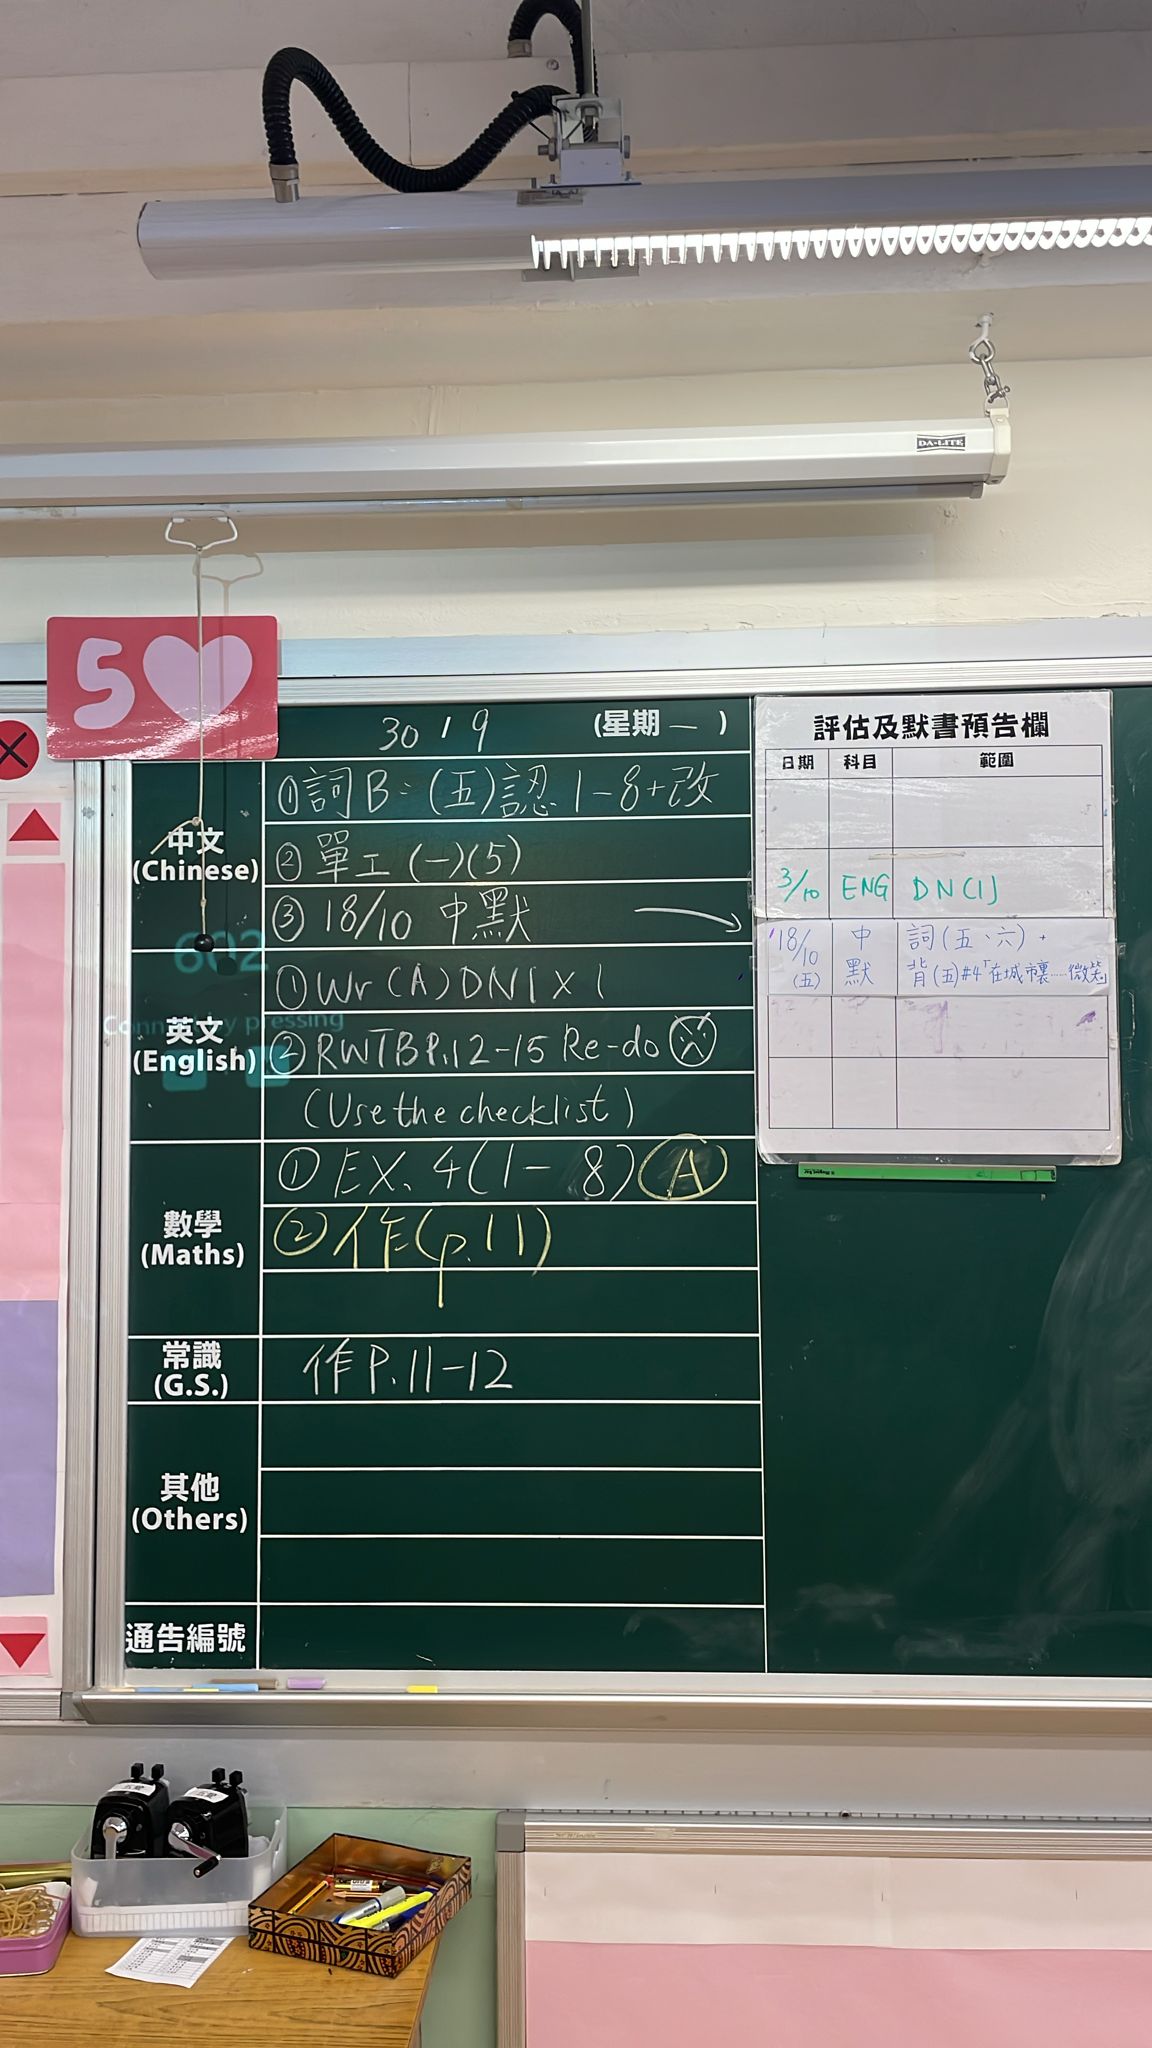 DA-LITE
5
30 / 9 (星期一)
中文
(Chinese)
①詞B:(五)認 1-8+改
②單工(一)(5)
③ 18/10 中默
英文
(English)
①Wr(A)DN1 x 1
②RWTBP.12-15 Re-do
(Use the checklist)
數學
(Maths)
①EX. 4(1-8) A
②作(p.11)
常識
(G.S.)
作P.11-12
其他
(Others)
通告編號
602
pressing
評估及默書預告欄
日期 科目 範圍
3/10 ENG DN(1)
18/10 (五) 中默 詞(五、六),
背(五)#4「在城市裏……微笑」